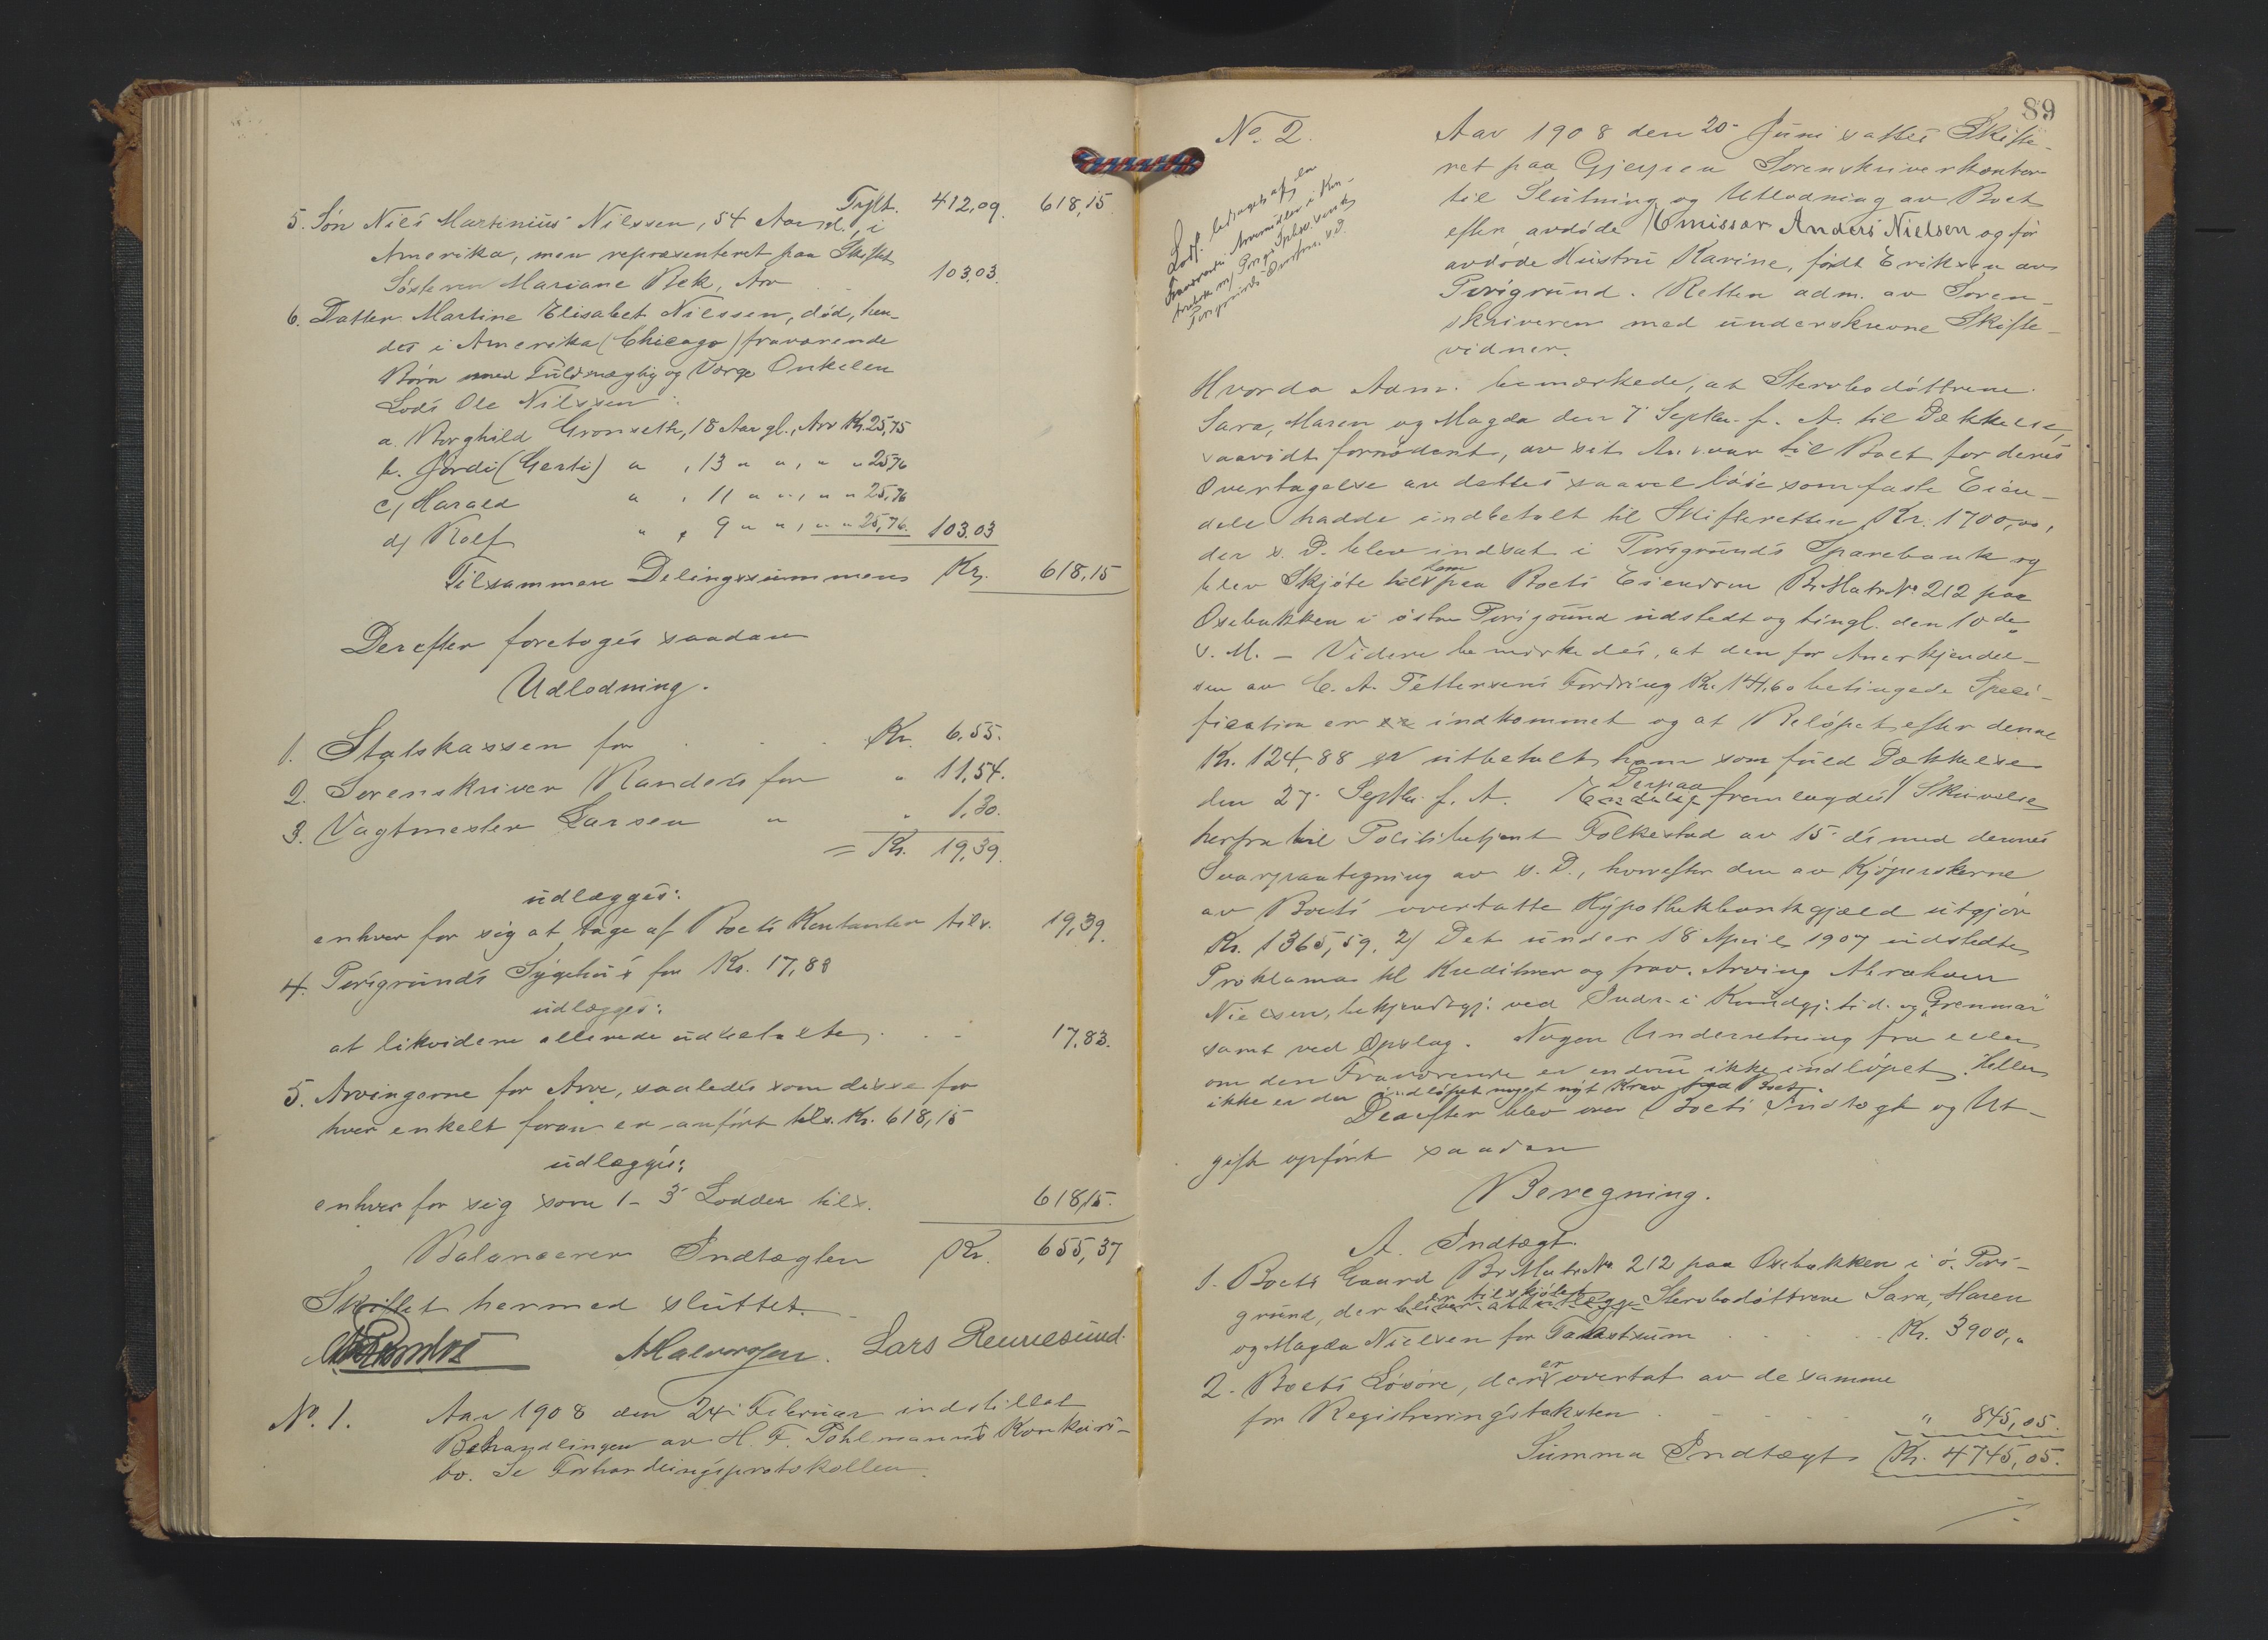 Tflt. 412,09. 618,15.
5. Søn Nils Martinius Nilssen, 54 Aar, i
Amerika, men repræsenteret paa Skiftet
Søsteren Mariane Bek, Arv 103,03.
6. Datter Martine Elisabet Nilssen, død, hen-
des i Amerika (Chicago) fraværende
Børn med Fuldmægtig og Værge Onkelen
Lods Ole Nilssen:
a. Borghild Gronseth, 18 Aar gl., Arv Kr. 25,75
b. Gjordi (Gerti) " , 13 " " , " " 25,76
c, Harald " , 11 " " , " " 25,76
d, Rolf " , 9 " " , " " 25,76. 103.03
Tilsammen Delingssummens Kr. 618,15
Derefter foretoges saadan
Udlodning.
1. Statskassen for . . . Kr. 6,55.
2. Sorenskriver Randers for " 11,54.
3. Vagtmester Larsen " " 1,30.
= Kr. 19,39.
udlægges:
enhver for sig at tage af Boets Kontanter tils. 19,39.
4. Porsgrunds Sygehus for Kr. 17,83
udlægges:
at likvidere allerede udbetalte . . 17,83.
5. Arvingerne for Arv, saaledes som disse for
hver enkelt foran er anført tils. Kr. 618,15
udlægges:
enhver for sig som 1-3 Lodder tils. 618,15.
Balancerer Indtægten Kr. 655,37
Skiftet hermed sluttet.
Lars Rennesund.
No. 1. Aar 1908 den 24 Februar indstillet
Behandlingen av H. F. Pohlmanns Konkurs-
bo. Se Forhandlingsprotokollen.
89
No. 2. Aar 1908 den 20 Juni sattes Skifte-
ret paa Gjerpen Sorenskriverkontor
til Slutning og Utlodning av Boet
efter avdøde Emissær Anders Nielsen og før
avdøde Hustru Karine, født Eriksen av
Porsgrund. Retten adm. av Soren-
skriveren med underskrevne Skifte-
vidner.
Hvorda Adm. bemærkede, at Stervbodøttrene
Sara, Maren og Magda den 7 Septbr. f. A. til Dækkelse,
saavidt fornødent, av sit Ansvar til Boet for deres
Overtagelse av dettes saavel løse som faste Eien-
dele hadde indbetalt til Skifteretten Kr. 1700,00,
der s. D. blev indsat i Porsgrunds Sparebank og
blev Skjøte til dem paa Boets Eiendom Br. Matr. No 212 paa
Oxebakken i østre Porsgrund udstedt og tingl. den 10de
s. M. – Videre bemærkedes, at den for Anerkjendel-
sen av C. A. Pettersens Fordring Kr. 141,60 betingede Speci-
fication er indkommet og at Beløpet efter denne
Kr. 124,88 er utbetalt ham som fuld Dækkelse
den 27 Septbr. f. A. Derpaa fremlagdes 1/ Skrivelse
herfra til Politibetjent Folkestad av 15 ds med dennes
Svarpaategning av s. D., hvorefter den av Kjøperskerne
av Boets overtatte Hypothekbankgjæld utgjør
Kr. 1365,59. 2/ Det under 18 April 1907 udstedte
Proklama til Kreditorer og frav. Arving Abraham
Nielsen, bekjendtgj. ved Indr. i Kundgj. tid. og "Grenmar"
samt ved Opslag. Nogen Underretning fra eller
om den Fraværende er endnu ikke indløpet. Heller
ikke er der indløpet noget nyt Krav Boet.
Derefter blev over Boets Indtægt og Ut-
gift opført saadan
Beregning.
A. Indtægt.
1. Boets Gaard Br. Matr. No. 212 paa Oxebakken i ø. Pors-
grund, der er tilskjødet Stervbodøttrene Sara, Maren
og Magda Nielsen for Takstsum . . . Kr. 3900,"
2. Boets Løsøre, der er overtat av de samme
for Registreringstaksten . . . " 845,05.
Summa Indtægt Kr. 4745,05.